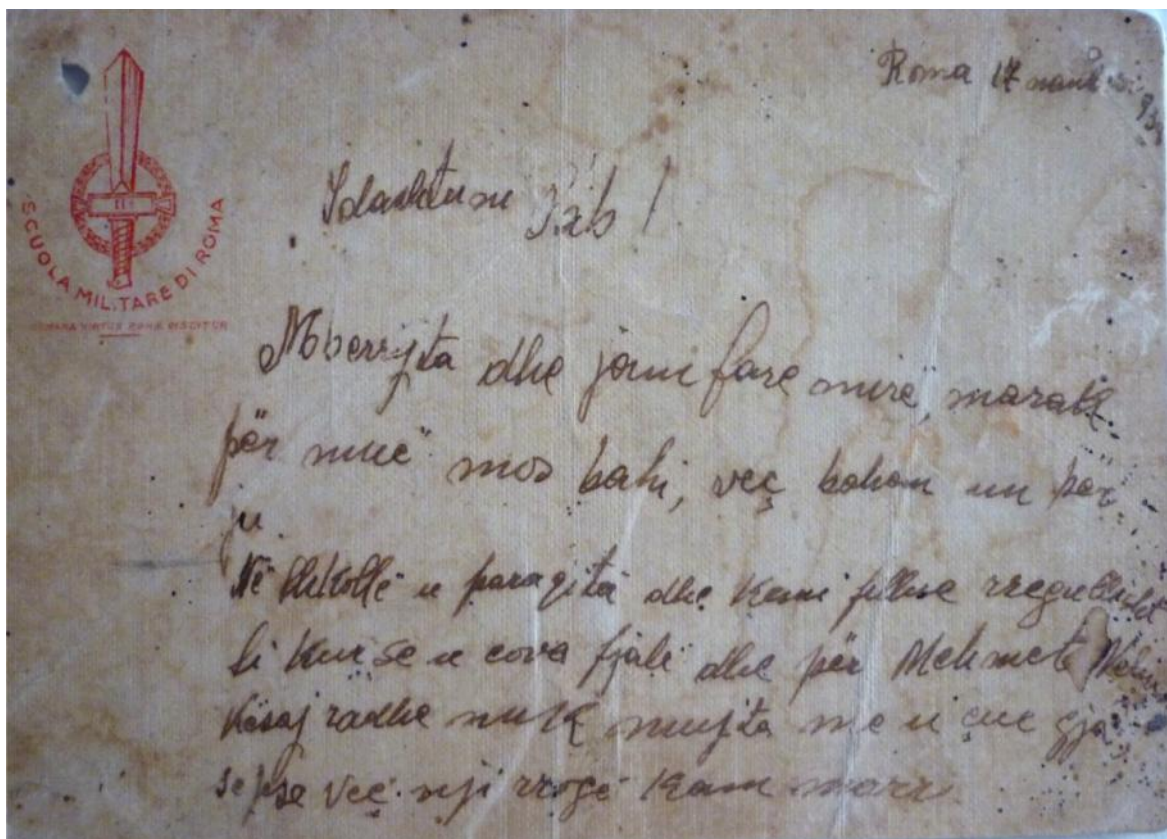 Roma 17
SCUOLA MILITARE DI ROMA
I dashtuni Bab!
Mbërrijta dhe jam fare mirë, marak
për mue mos bahi, veç bahem un për
ju.
Në shkollë u paraqita dhe kam fillue rregullisht
si kurse u çova fjalë dhe për Mehmet
Kësaj radhe nuk mujta me u çue gja,
sepse veç nji rrogë kam marr